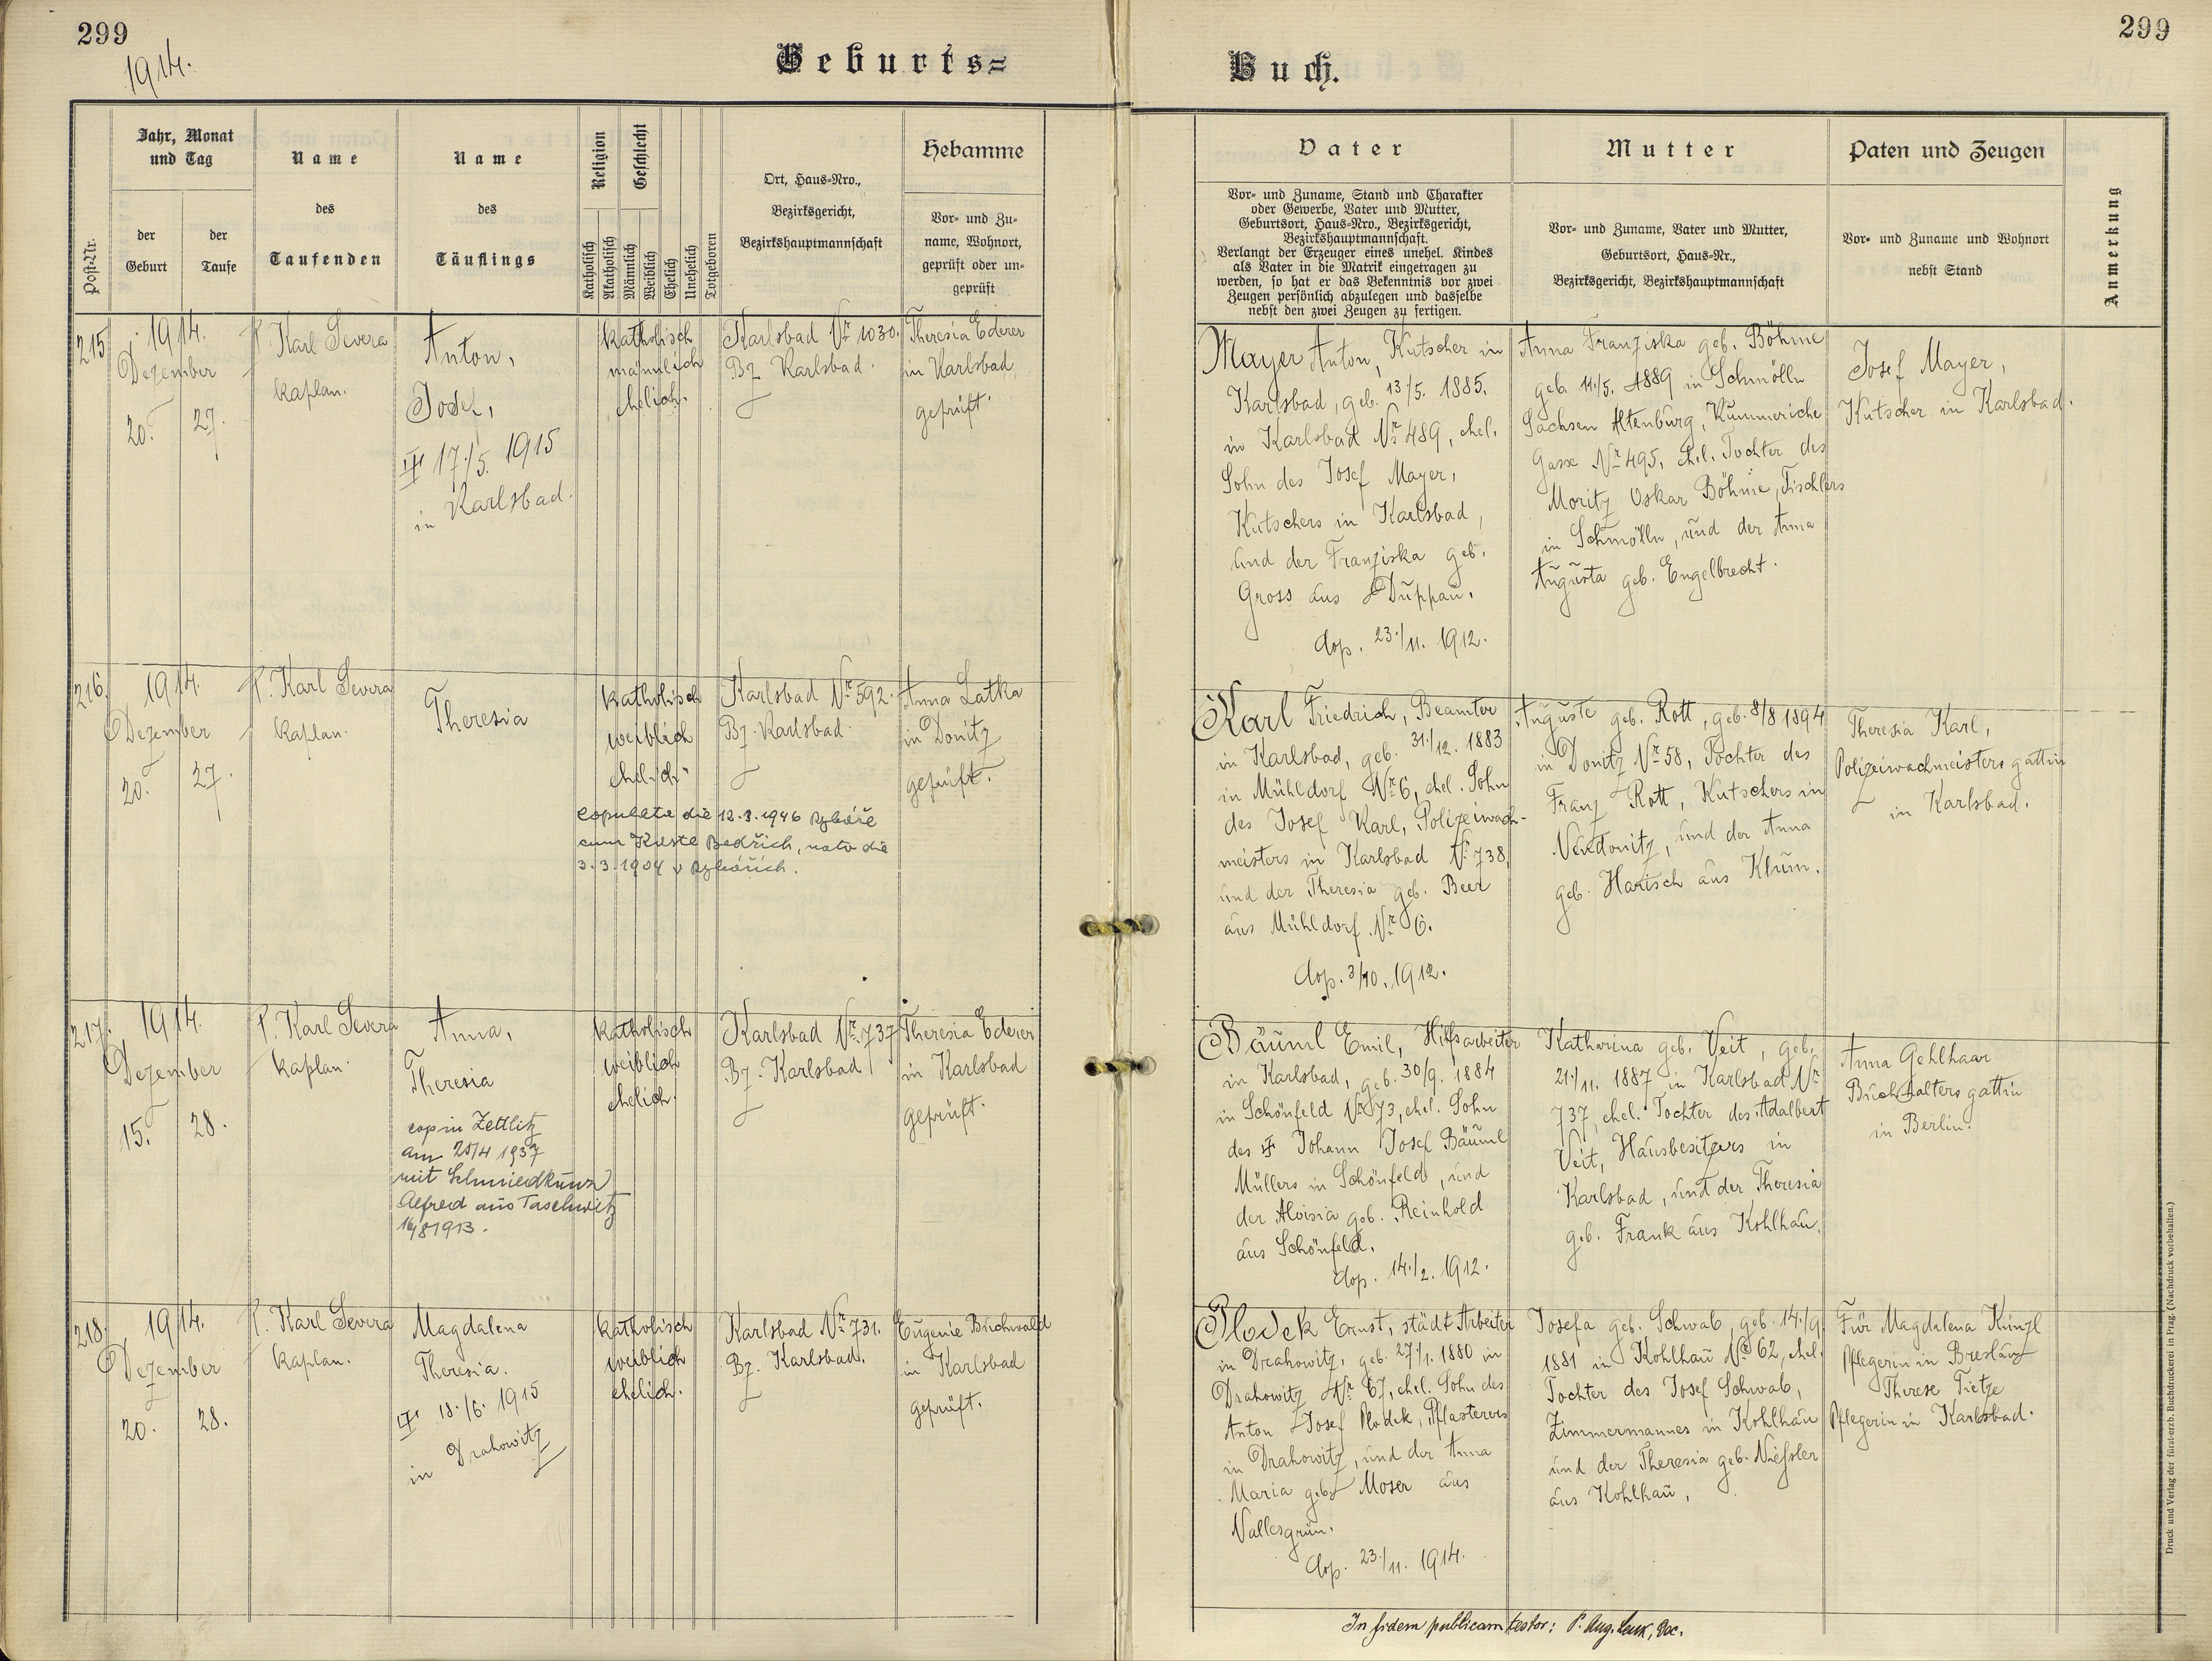 299
1914.
Geburts=
Buch.
299
Post-Nr.
Jahr, Monat
und Tag
der
Geburt
der
Taufe
Name
des
Taufenden
Name
des
Täuflings
Religion
Geschlecht
Katholisch
Akatholisch
Männlich
Weiblich
Ehelich
Unehelich
Totgeboren
Ort, Haus-Nro.,
Bezirksgericht,
Bezirkshauptmannschaft
Hebamme
Vor- und Zu-
name, Wohnort,
geprüft oder un-
geprüft
Vater
Vor- und Zuname, Stand und Charakter
oder Gewerbe, Vater und Mutter,
Geburtsort, Haus-Nro., Bezirksgericht,
Bezirkshauptmannschaft.
Verlangt der Erzeuger eines unehel. Kindes
als Vater in die Matrik eingetragen zu
werden, so hat er das Bekenntnis vor zwei
Zeugen persönlich abzulegen und dasselbe
nebst den zwei Zeugen zu fertigen.
Mutter
Vor- und Zuname, Vater und Mutter,
Geburtsort, Haus-Nr.,
Bezirksgericht, Bezirkshauptmannschaft
Paten und Zeugen
Vor- und Zuname und Wohnort
nebst Stand
Anmerkung
215
1914.
Dezember
20.
27.
P. Karl Severa
Kaplan.
Anton,
Josef,
17./5. 1915
in Karlsbad.
katholisch
männlich
ehelich.
Karlsbad Nr. 1030.
Bz Karlsbad.
Theresia Ederer
in Karlsbad,
geprüft.
Mayer Anton, Kutscher in
Karlsbad, geb. 13./5. 1885.
in Karlsbad Nr. 489, ehel.
Sohn des Josef Mayer,
Kutschers in Karlsbad,
und der Franziska geb.
Gross aus Duppau.
Cop. 23./11. 1912.
Anna Franziska geb. Böhme
geb. 11./5. 1889 in Schmölln
Sachsen Altenburg, Kummeriche
Gasse Nr. 495, ehel. Tochter des
Moritz Oskar Böhme, Tischlers
in Schmölln, und der Anna
Augusta geb. Engelbrecht.
Josef Mayer,
Kutscher in Karlsbad.
216.
1914.
Dezember
20.
27.
P. Karl Severa
Kaplan.
Theresia
katholisch
weiblich
ehelich.
copulata die 12.3.1946 Rybáře
cum Kuste Bedřich, nato die
3.3.1904 v Rybářích.
Karlsbad Nr. 592.
Bz. Karlsbad.
Anna Latka
in Donitz
geprüft.
Karl Friedrich, Beamter
in Karlsbad, geb. 31./12. 1883
in Mühldorf Nr. 6, ehel. Sohn
des Josef Karl, Polizeiwach-
meisters in Karlsbad Nr. 738,
und der Theresia geb. Beer
aus Mühldorf Nr. 6.
Cop. 3/10. 1912.
Auguste geb. Rott, geb. 8/8 1894
in Donitz Nr. 58, Tochter des
Franz Rott, Kutschers in
Neudonitz, und der Anna
geb. Harisch aus Klum.
Theresia Karl,
Polizeiwachmeistersgattin
in Karlsbad.
217.
1914.
Dezember
15.
28.
P. Karl Severa
Kaplan.
Anna,
Theresia
cop in Zettlitz
am 25/4 1937
mit Schmiedkunz
Alfred aus Taschwitz
14/8 1913.
katholisch
weiblich
ehelich.
Karlsbad Nr. 737
Bz. Karlsbad
Theresia Ederer
in Karlsbad
geprüft.
Bäuml Emil, Hilfsarbeiter
in Karlsbad, geb. 30/9. 1884
in Schönfeld Nr. 73, ehel. Sohn
des Johann Josef Bäuml
Müllers in Schönfeld, und
der Aloisia geb. Reinhold
aus Schönfeld.
Cop. 14./2. 1912.
Katharina geb. Veit, geb.
21./11. 1887 in Karlsbad Nr.
737, ehel. Tochter des Adalbert
Veit, Hausbesitzers in
Karlsbad, und der Theresia
geb. Frank aus Kohlhau.
Anna Gehlhaar
Buchhaltersgattin
in Berlin.
218.
1914.
Dezember
20.
28.
P. Karl Severa
Kaplan.
Magdalena
Theresia.
18./6. 1915
in Drahowitz
katholisch
weiblich
ehelich.
Karlsbad Nr. 731.
Bz. Karlsbad.
Eugenie Buchwald
in Karlsbad
geprüft.
Plodek Ernst, städt Arbeiter
in Drahowitz, geb. 27./1. 1880 in
Drahowitz Nr. 67, ehel. Sohn des
Anton Josef Plodek, Pflasterers
in Drahowitz, und der Anna
Maria geb. Moser aus
Vallesgrün.
Cop. 23./11. 1914.
Josefa geb. Schwab, geb. 14./9.
1881 in Kohlhau Nr. 62, ehel.
Tochter des Josef Schwab,
Zimmermannes in Kohlhau
und der Theresia geb. Niessler
aus Kohlhau.
Für Magdalena Künzl
Pflegerin in Breslau
Therese Tietze
Pflegerin in Karlsbad.
In fidem publicam testor: P. Aug.
Druck und Verlag der fürst-erzb. Buchdruckerei in Prag. (Nachdruck vorbehalten.)